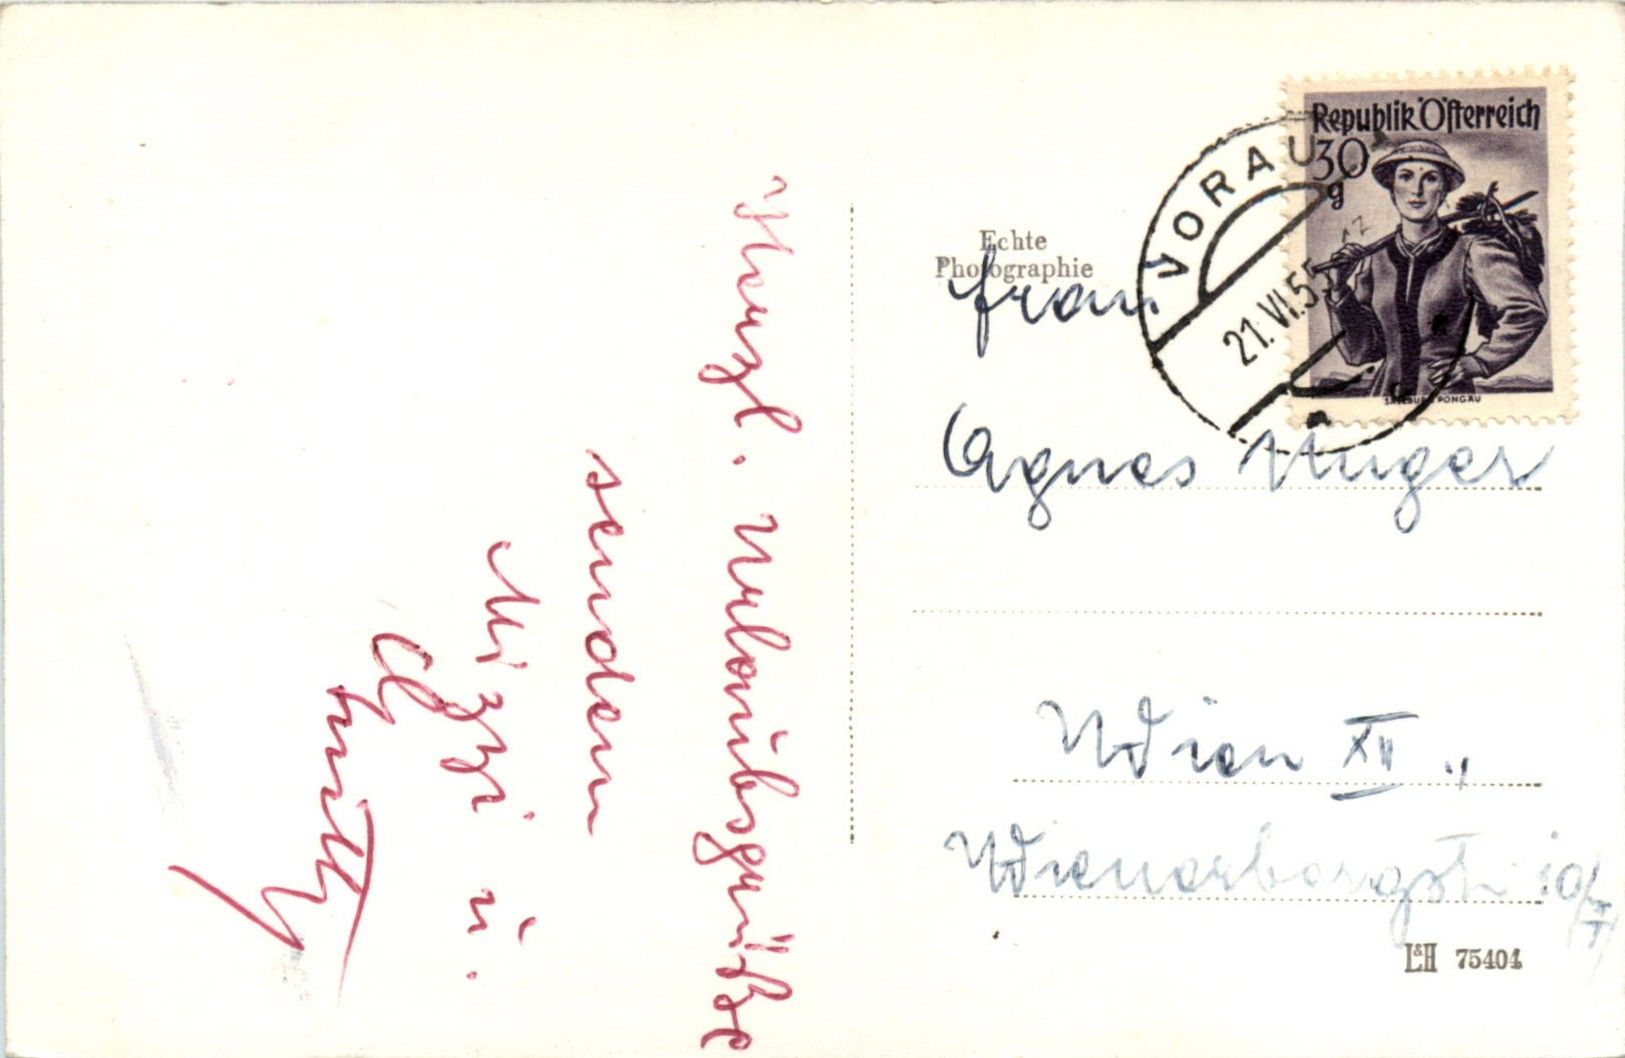 Herzl. Urlaubsgrüße
senden
Mizzi u.
Echte
Photographie
Frau
Agnes Unger
Wien XII.,
Wienerbergstr.
L&H 75404
VORAU
21.VI.55
Republik Österreich
30
g
SALZBURG PONGAU